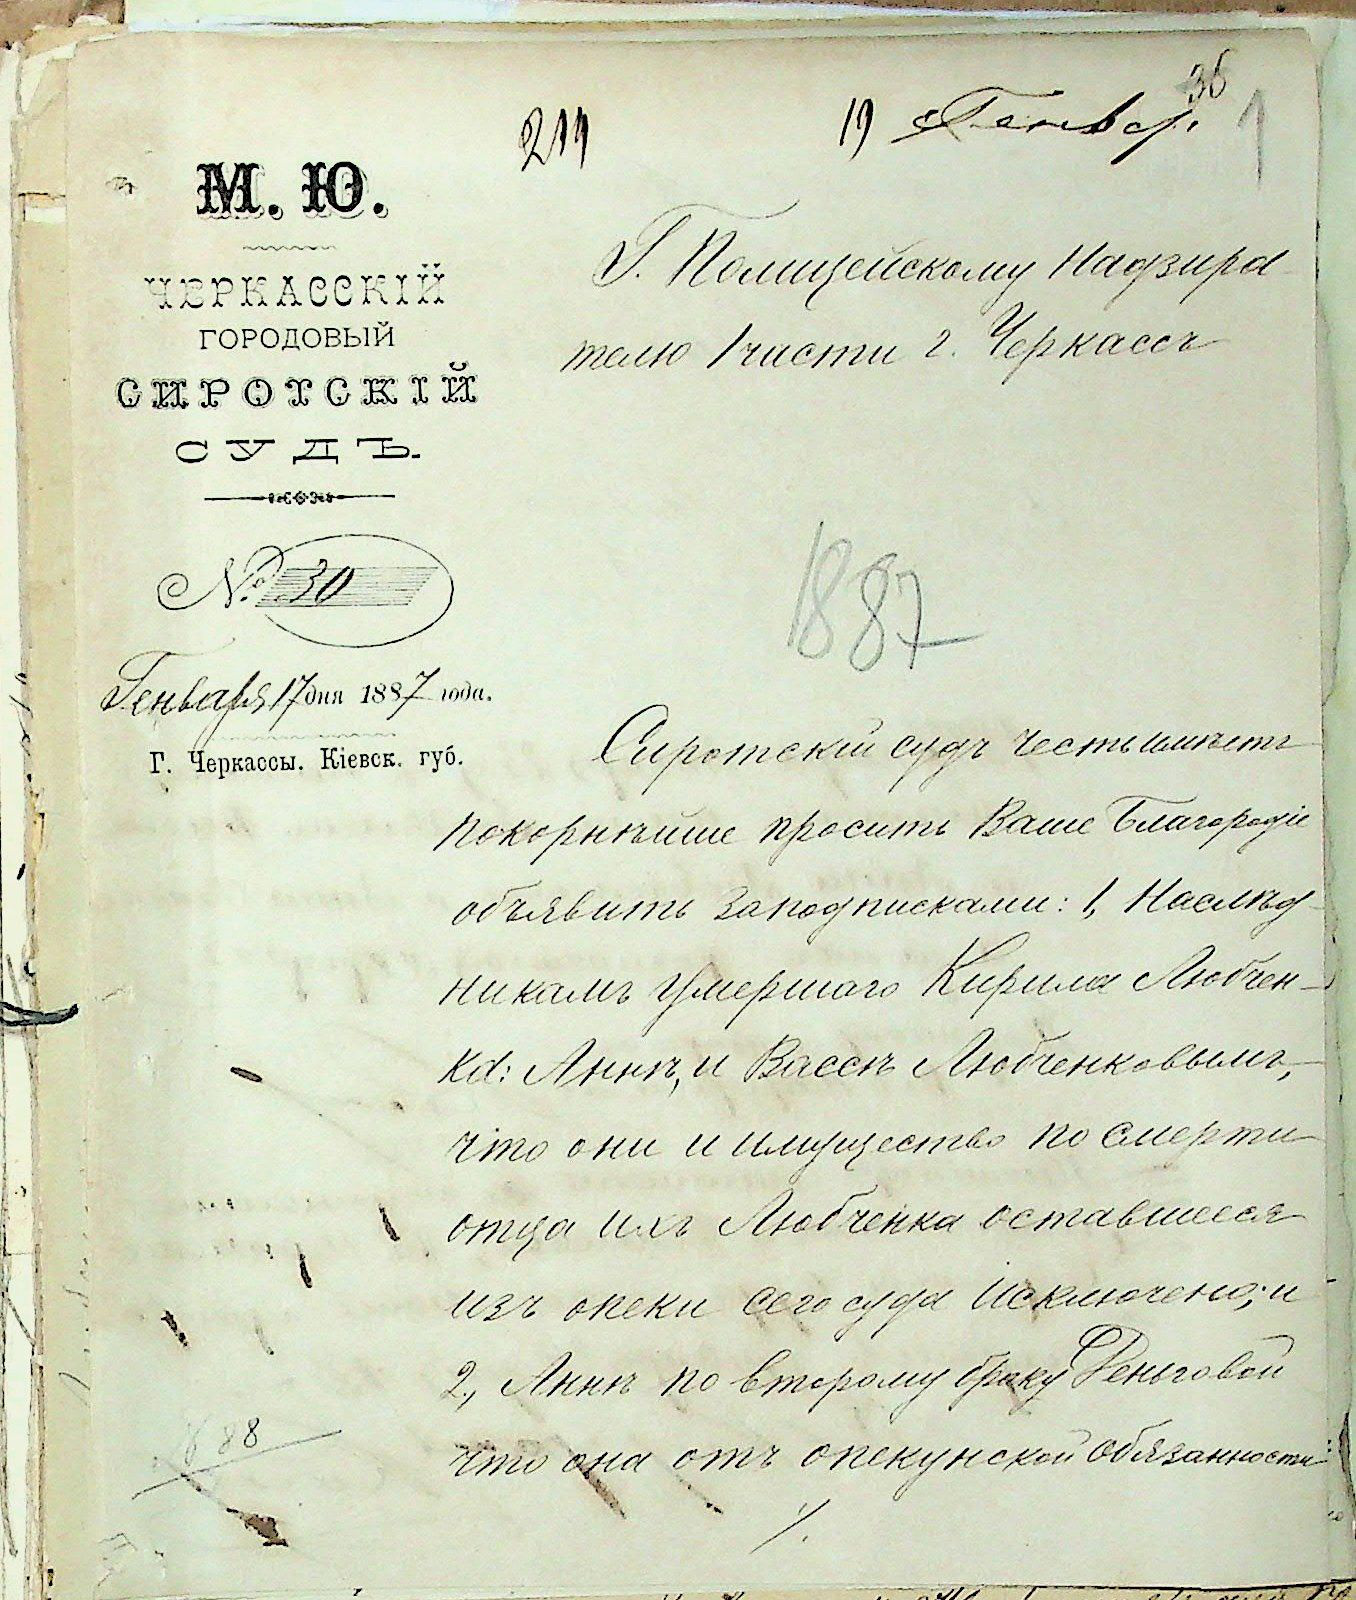 36
211
19 Генвар.
1
М. Ю.
ЧЕРКАССКІЙ
ГОРОДОВЫЙ
СИРОТСКІЙ
СУДЪ.
№ 30
Генваря 17 дня 1887 года.
Г. Черкассы. Кіевск. губ.
Г. Полицейскому Надзира
телю 1 части г. Черкассъ
1887
Сиротскій судъ честь имѣетъ
покорнѣйше просить Ваше Благородіе
объявить за подписками: 1, Наслѣд-
никамъ умершаго Кирила Любчен-
ка: Аннѣ, и Вассѣ Любченковымъ,
что они и имущество по смерти
отца ихъ Любченка оставшееся
изъ опеки сего суда исключено; и
2, Аннѣ по второму браку Деньговой
что она отъ опекунской обязанности
88